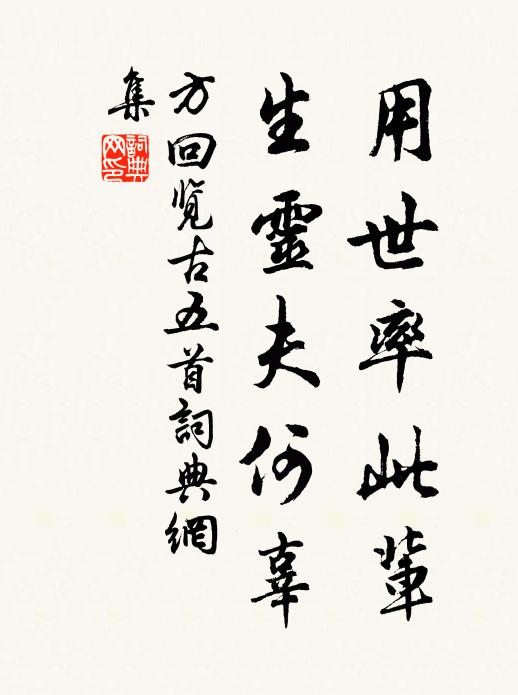 用世率此輩
生靈夫何辜
方回覧古五首詞典網
集
詞典
网印